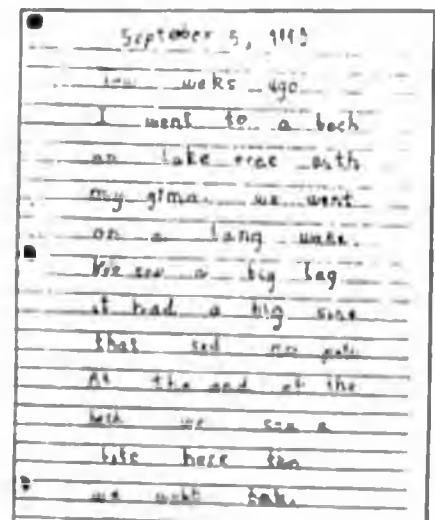 September 5, 199
weks ago
I went to a bech
on lake eree with
my gima. we went
on a lang wake.
We sow a big
it had a big sine
that sed no
At the end of the
bech we saw a
here
we